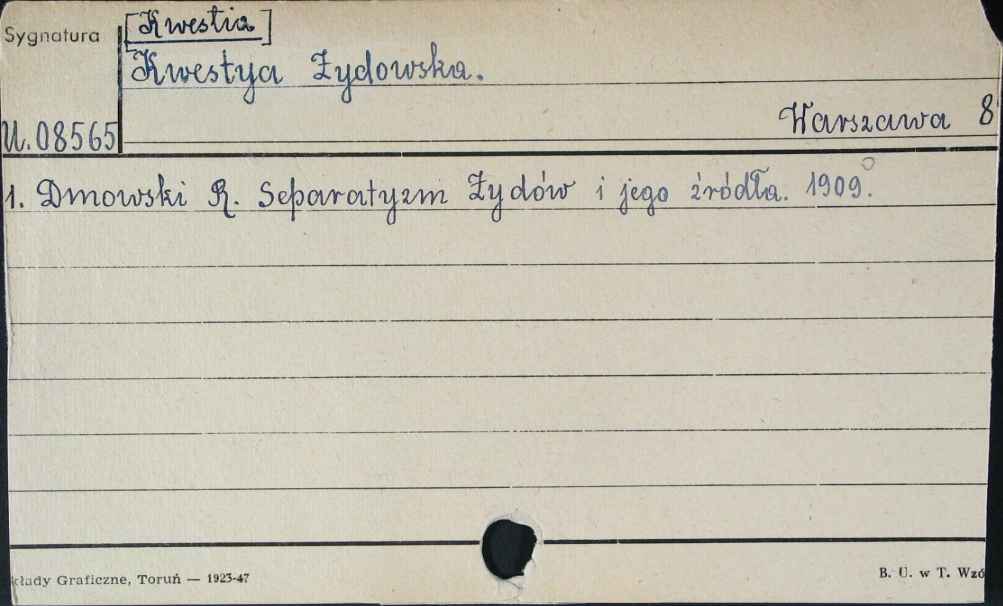 Sygnatura
[Kwestia]
Kwestya Żydowska.
Warszawa 8
U.08565
1. Dmowski R. Separatyzm Żydów i jego źródła. 1909.
kłady Graficzne, Toruń — 1923-47
B. U. w T. Wzó